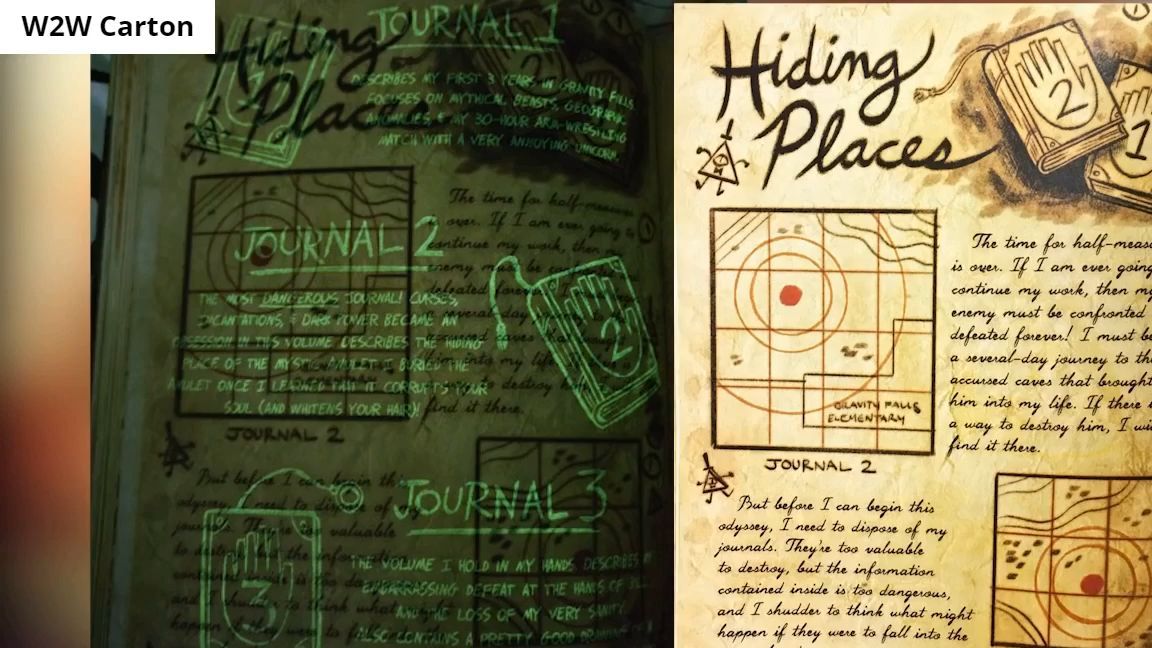 W2W Carton
Hiding
Places
JOURNAL 1
DESCRIBES MY FIRST 3 YEARS IN GRAVITY FALLS.
FOCUSES ON MYTHICAL BEASTS, GEOGRAPHIC
ANOMALIES & MY 30-HOUR ARM-WRESTLING
MATCH WITH A VERY ANNOYING UNICORN.
JOURNAL 2
THE MOST DANGEROUS JOURNAL! CURSES,
INCANTATIONS, & DARK POWER BECAME AN
OBSESSION IN THIS VOLUME. DESCRIBES THE HIDING
PLACE OF THE MYSTIC AMULET. I BURIED THE
AMULET ONCE I LEARNED THAT IT CORRUPTS YOUR
SOUL (AND WHITENS YOUR HAIR)
2
The time for half-measures
is over. If I am ever going to
continue my work, then my
enemy must be confronted
defeated forever! I
a several-day journey to the
accursed caves that brought
him into my life.
to destroy him,
find it there.
JOURNAL 2
But before I can begin this
odyssey, I need to dispose of my
journals. They're too valuable
to destroy, but the information
contained inside is too dangerous,
and I shudder to think what might
happen if they were to fall
JOURNAL 3
THE VOLUME I HOLD IN MY HANDS. DESCRIBES
EMBARRASSING DEFEAT AT THE HANDS OF BILL
AND THE LOSS OF MY VERY SANITY.
ALSO CONTAINS A PRETTY GOOD DRAWING
3
Hiding
Places
2
1
The time for half-meas
is over. If I am ever going
continue my work, then my
enemy must be confronted
defeated forever! I must be
a several-day journey to the
accursed caves that brought
him into my life. If there i
a way to destroy him, I wi
find it there.
GRAVITY FALLS
ELEMENTARY
JOURNAL 2
But before I can begin this
odyssey, I need to dispose of my
journals. They're too valuable
to destroy, but the information
contained inside is too dangerous,
and I shudder to think what might
happen if they were to fall into the